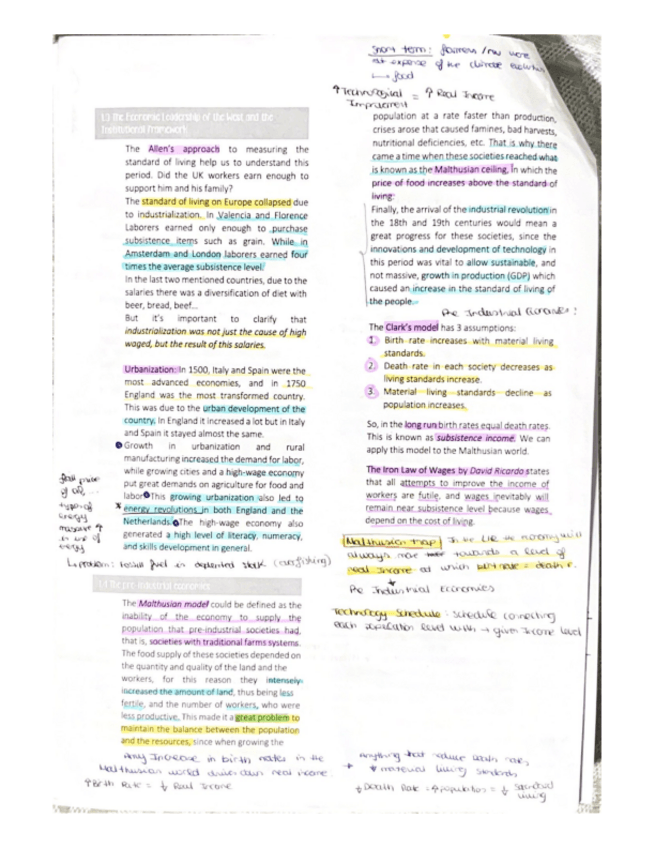 1.3 The Economic Leadership of the West and the
Institutional Framework
The Allen's approach to measuring the
standard of living help us to understand this
period. Did the UK workers earn enough to
support him and his family?
The standard of living on Europe collapsed due
to industrialization. In Valencia and Florence
Laborers earned only enough to purchase
subsistence items such as grain. While in
Amsterdam and London laborers earned four
times the average subsistence level.
In the last two mentioned countries, due to the
salaries there was a diversification of diet with
beer, bread, beef...
But it's important to clarify that
industrialization was not just the cause of high
waged, but the result of this salaries.
Urbanization: In 1500, Italy and Spain were the
most advanced economies, and in 1750
England was the most transformed country.
This was due to the urban development of the
country. In England it increased a lot but in Italy
and Spain it stayed almost the same.
Growth in urbanization and rural
manufacturing increased the demand for labor,
while growing cities and a high-wage economy
put great demands on agriculture for food and
labor This growing urbanization also led to
x energy revolutions in both England and the
Netherlands The high-wage economy also
generated a high level of literacy, numeracy,
and skills development in general.
of
types of
energy
massive ↑
in use of
energy
↳ problem: fossil fuel is depleted stock (overfishing)
1.4 The pre-industrial economies
The Malthusian model could be defined as the
inability of the economy to supply the
population that pre-industrial societies had,
that is, societies with traditional farms systems.
The food supply of these societies depended on
the quantity and quality of the land and the
workers, for this reason they intensely
increased the amount of land, thus being less
fertile, and the number of workers, who were
less productive. This made it a great problem to
maintain the balance between the population
and the resources, since when growing the
Any Increase in birth rates in the
Malthusian world drives down real income.
↑ Birth Rate = ↓ Real Income
Short term: farmers / were
at expense of the climate
↳ food
↑ Technological = ↑ Real Income
Improvement
population at a rate faster than production,
crises arose that caused famines, bad harvests,
nutritional deficiencies, etc. That is why there
came a time when these societies reached what
is known as the Malthusian ceiling, in which the
price of food increases above the standard of
living.
Finally, the arrival of the industrial revolution in
the 18th and 19th centuries would mean a
great progress for these societies, since the
innovations and development of technology in
this period was vital to allow sustainable, and
not massive, growth in production (GDP) which
caused an increase in the standard of living of
the people.
Pre Industrial Economies:
The Clark's model has 3 assumptions:
1. Birth rate increases with material living
standards.
2. Death rate in each society decreases as
living standards increase.
3. Material living standards decline as
population increases.
So, in the long run birth rates equal death rates.
This is known as subsistence income. We can
apply this model to the Malthusian world.
The Iron Law of Wages by David Ricardo states
that all attempts to improve the income of
workers are futile, and wages inevitably will
remain near subsistence level because wages
depend on the cost of living.
Malthusian trap In the LR the economy will
always move towards a level of
real Income at which birth rate = death r.
Pre Industrial Economics
Technology Schedule: schedule connecting
each population level with a given Income level
Anything that reduce death rate,
↓ material living standards
↓ Death Rate : ↑ population = ↓ standard
living